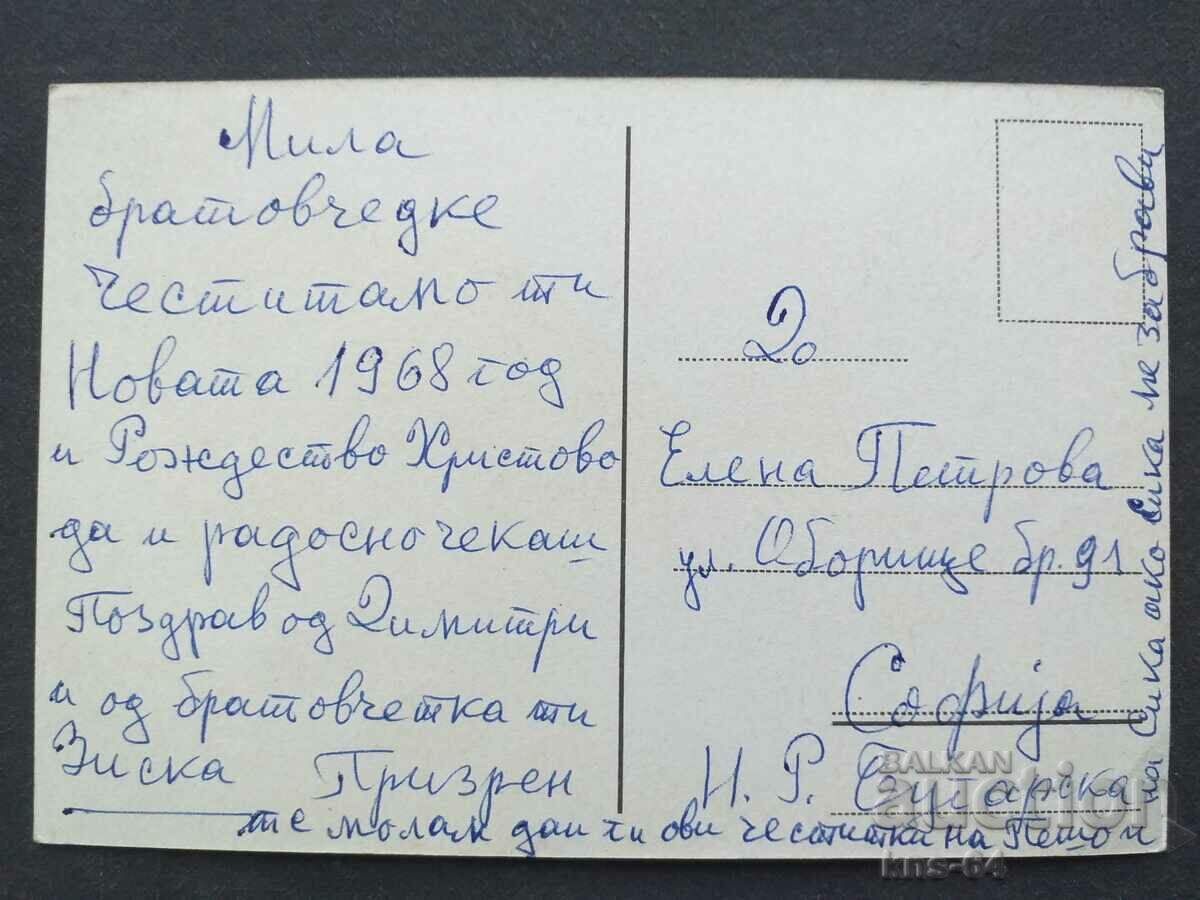 Мила
братовчедке
Честитамо ти
Новата 1968 год
и Рождество Христово
да и радосно чекаш
Поздрав од Димитри
и од братовчетка ти
Зиска Призрен
те молам даи ги ови честитки на Пешо и
на Сика ако Сика ме забрави
До
Елена Петрова
ул. Оборище бр. 91
Софија
Н. Р. Бугарска
BALKAN
auction
kns-64